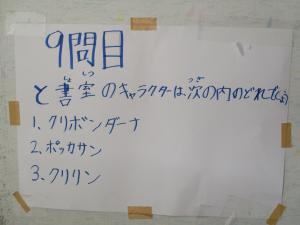 9問目
と書室のキャラクターは、次の内のどれでしょう
しょ しつ つぎ
1、クリボンダーナ
2、ポッカサン
3、クリリン